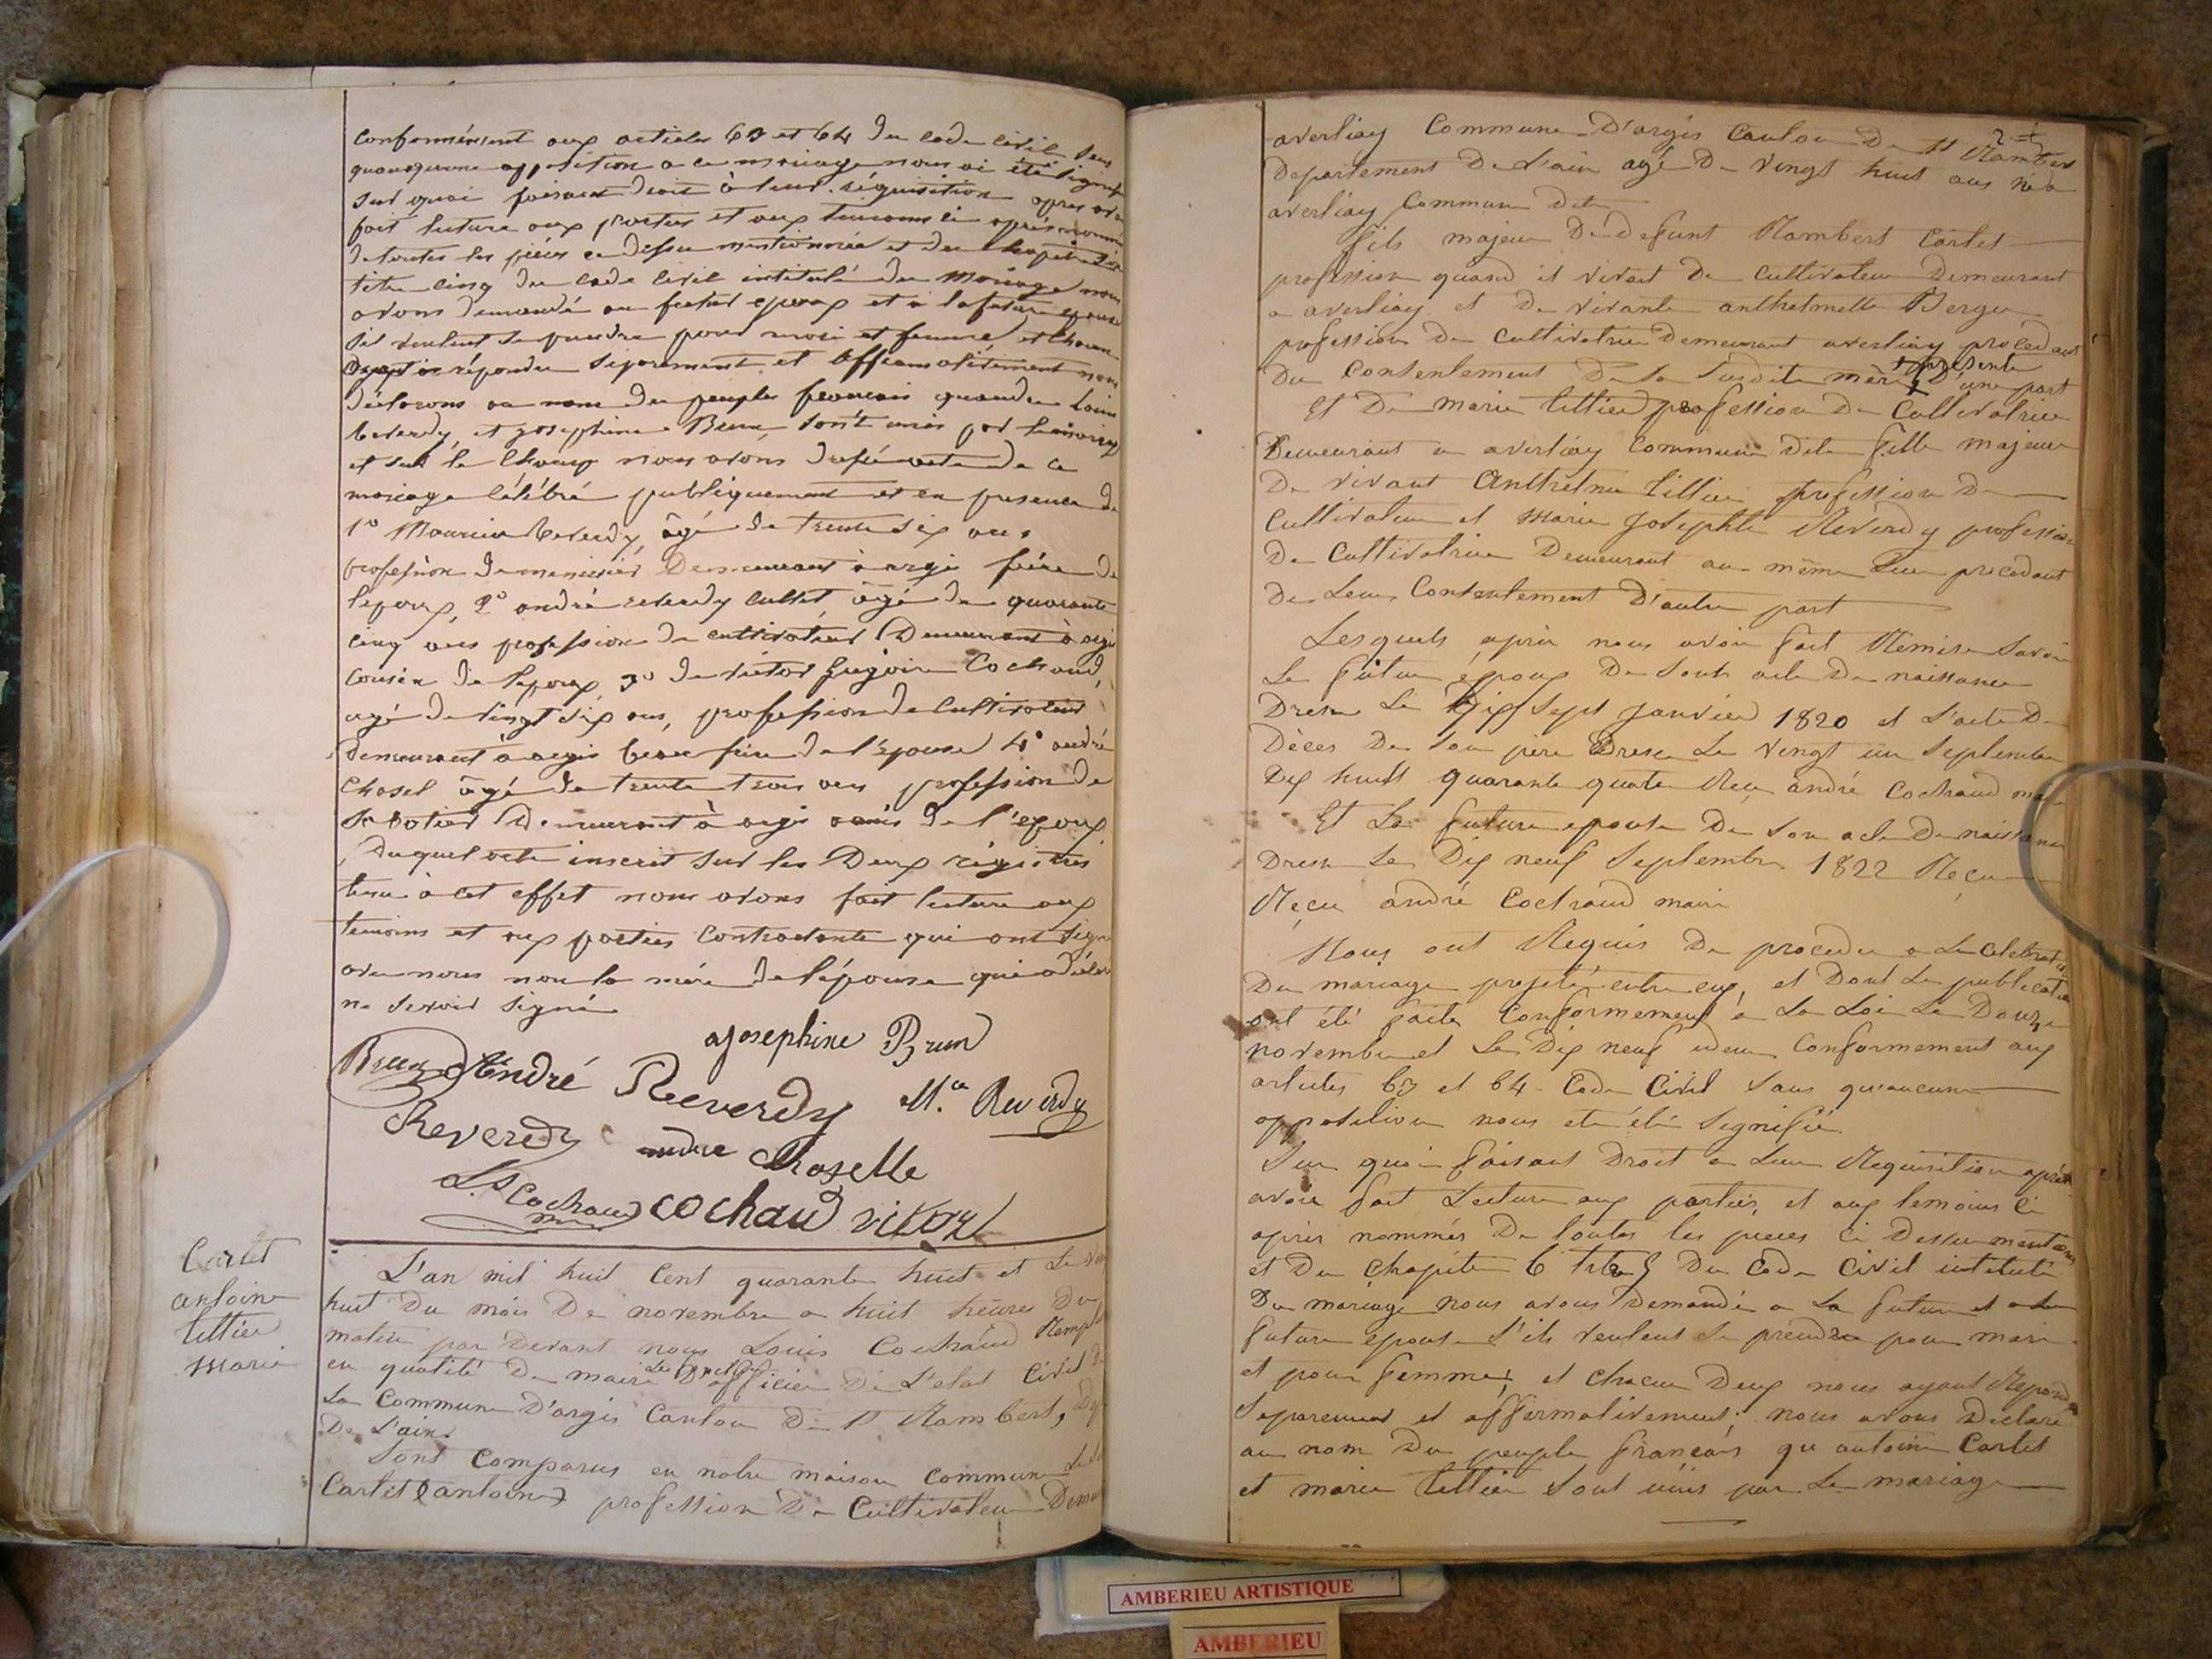 conformément aux articles 63 et 64 du code civil sans
qu'aucune opposition a ce mariage nous ai été signifié
sur quoi faisant droit à leur réquisition apres avoir
fait lecture aux parties et aux temoins ci après nommés
de toutes les pièces ci dessu mentionnées et du chapitre six
titre cinq du code civil intitulé du Mariage nous
avons demandé au futur epoux et à la future epouse
sil veulent se prendre pour mari et femme et chacun
repondu séparement et affirmativement nous
déclarons au nom du peuple francais que
Reverdy, et josephine Brun, sont unis par le mariage
et sur le champ nous avons dressé acte de ce
mariage célébré publiquement et en presence de
1º Maurice Reverdy, âgé de trente six ans
profession de menuisier Demeurant à argis frère de
lepoux, 2º andré reverdy cultet, âgé de quarante
cinq ans profession de cultivateur Demeurant à argis
cousin de lepoux 3º de victor Cochaud,
agé de vingt six ans, profession de cultivateur
demeurant à argis beau frère de l'épouse 4º andré
Chosel âgé de trente trois ans profession de
sabotier Demeurant à argis amis de l'epoux
Duquel acte inscrit sur les Deux régistres
tenu à cet effet nous avons fait lecture aux
temoins et aux parties contractante qui ont signé
avec nous non la mère de l'épouse qui a déclaré
ne savoir signé
Josephine Brun
Brun André Reverdy M.ce Reverdy
Reverdy andre Choselle
Ls Cochaud cochaud victor
Carlet
antoine
tettier
Marie
L'an mil huit cent quarante huit et le
huit Du mois De novembre a huit heures Du
matin par Devant nous Louis Cochaud
en qualité De maire Les fonctions D'officier De L'etat Civil De
La Commune D'argis Canton De St Rambert,
De L'ain.
Sont Comparus en notre maison Commune
Carlet (antoine) profession De Cultivateur
2
averliay Commune D'argis Canton De St Rambert
Departement De L'ain agé De vingt huit ans né a
averliay Commune Dite
fils majeur De défunt Rambert Carlet
profession quand il vivait De Cultivateur Demeurant
a averliay et De vivante anthelmette Berger
profession De Cultivatrice Demeurant averliay procedant
Du Consentement De sa susdite mère + présente D'une part
Et De Marie tettier profession De Cultivatrice
Demeurant a averliay Commune Dite fille majeure
De vivant Anthelme tettier profession De
Cultivateur et Marie Josephte Reverdy profession
De Cultivatrice Demeurant au même Lieu procedant
De Leur Consentement D'autre part
Lesquels après nous avoir fait Remise Savoir
Le futur époux De Sont acte De naissance
Dressé Le Dix Sept Janvier 1820 et L'acte De
Décès De Son père Dressé Le vingt un Septembre
Dix huit quarante quatre Reçu andré Cochaud maire
Et La future epouse De Son acte De naissance
Dressé Le Dix neuf Septembre 1822 Reçu
Reçu andré Cochaud maire
Nous ont Requis De proceder a La Celebration
Du mariage projeté entre eux, et Dont Les publications
ont été faites Conformement a La Loi Le Douze
novembre et Le Dix neuf idem Conformement aux
articles 63 et 64 Code Civil Sans qu'aucune
opposition nous ete été Signifié
Sur quoi faisant Droit a Leur Requisition après
avoir fait Lecture aux parties, et aux temoins Ci
après nommés De toutes les pieces Ci Dessu
et Du Chapitre 6 titre 5 Du Code Civil intitulé
Du mariage nous avons Demandé a La futur et a La
future epouse S'ils veulent Se prendre pour mari
et pour femme, et chacun Deux nous ayant Repondu
Separement et affermativement; nous avons Déclaré
au nom Du peuple français que antoine Carlet
et marie tettier Sont unis par Le mariage
AMBERIEU ARTISTIQUE
AMBERIEU